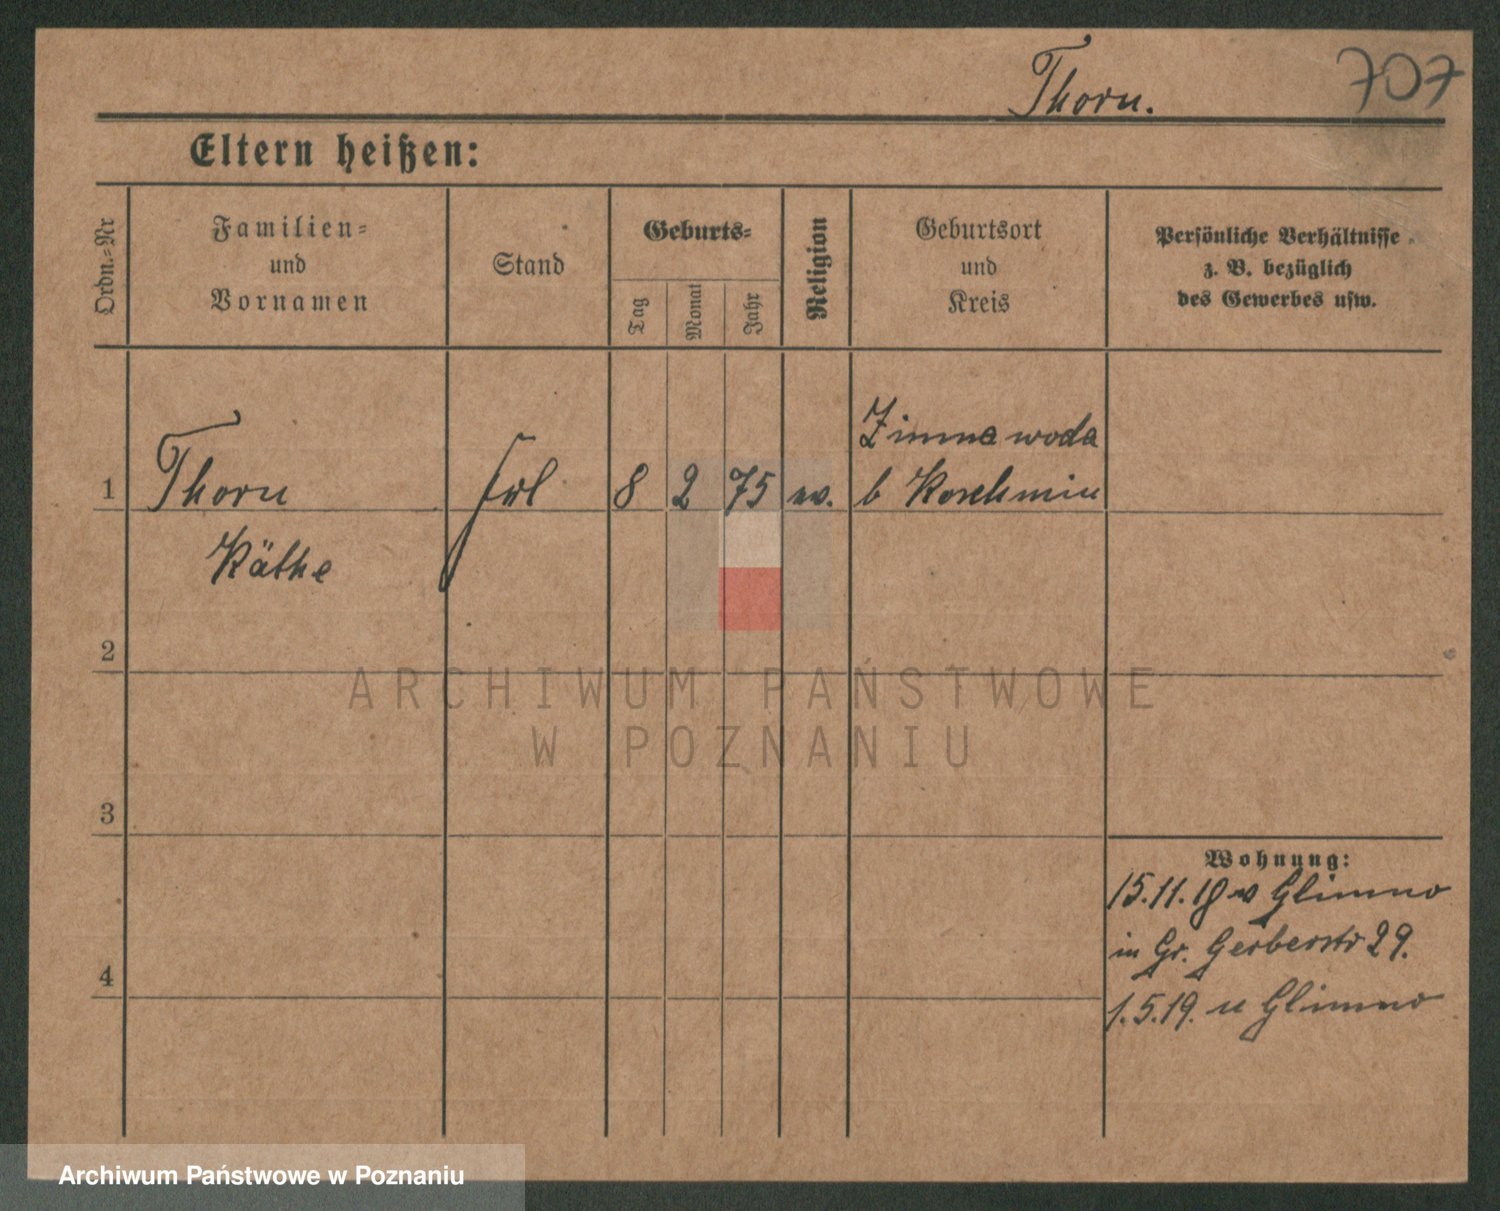 707
Thorn.
Eltern heißen:
Ordn.-Nr
Familien-
und
Vornamen
Stand
Geburts-
Tag
Monat
Jahr
Religion
Geburtsort
und
Kreis
Persönliche Verhältnisse
z. B. bezüglich
des Gewerbes usw.
Zimnawoda
1 Thorn Frl 8 2 75 ev. b Koschmin
Käthe
2
ARCHIWUM PAŃSTWOWE
W POZNANIU
3
Wohnung:
15.11.18 v Glimno
in Gr. Gerberstr 29.
4
1.5.19. n Glimno
Archiwum Państwowe w Poznaniu